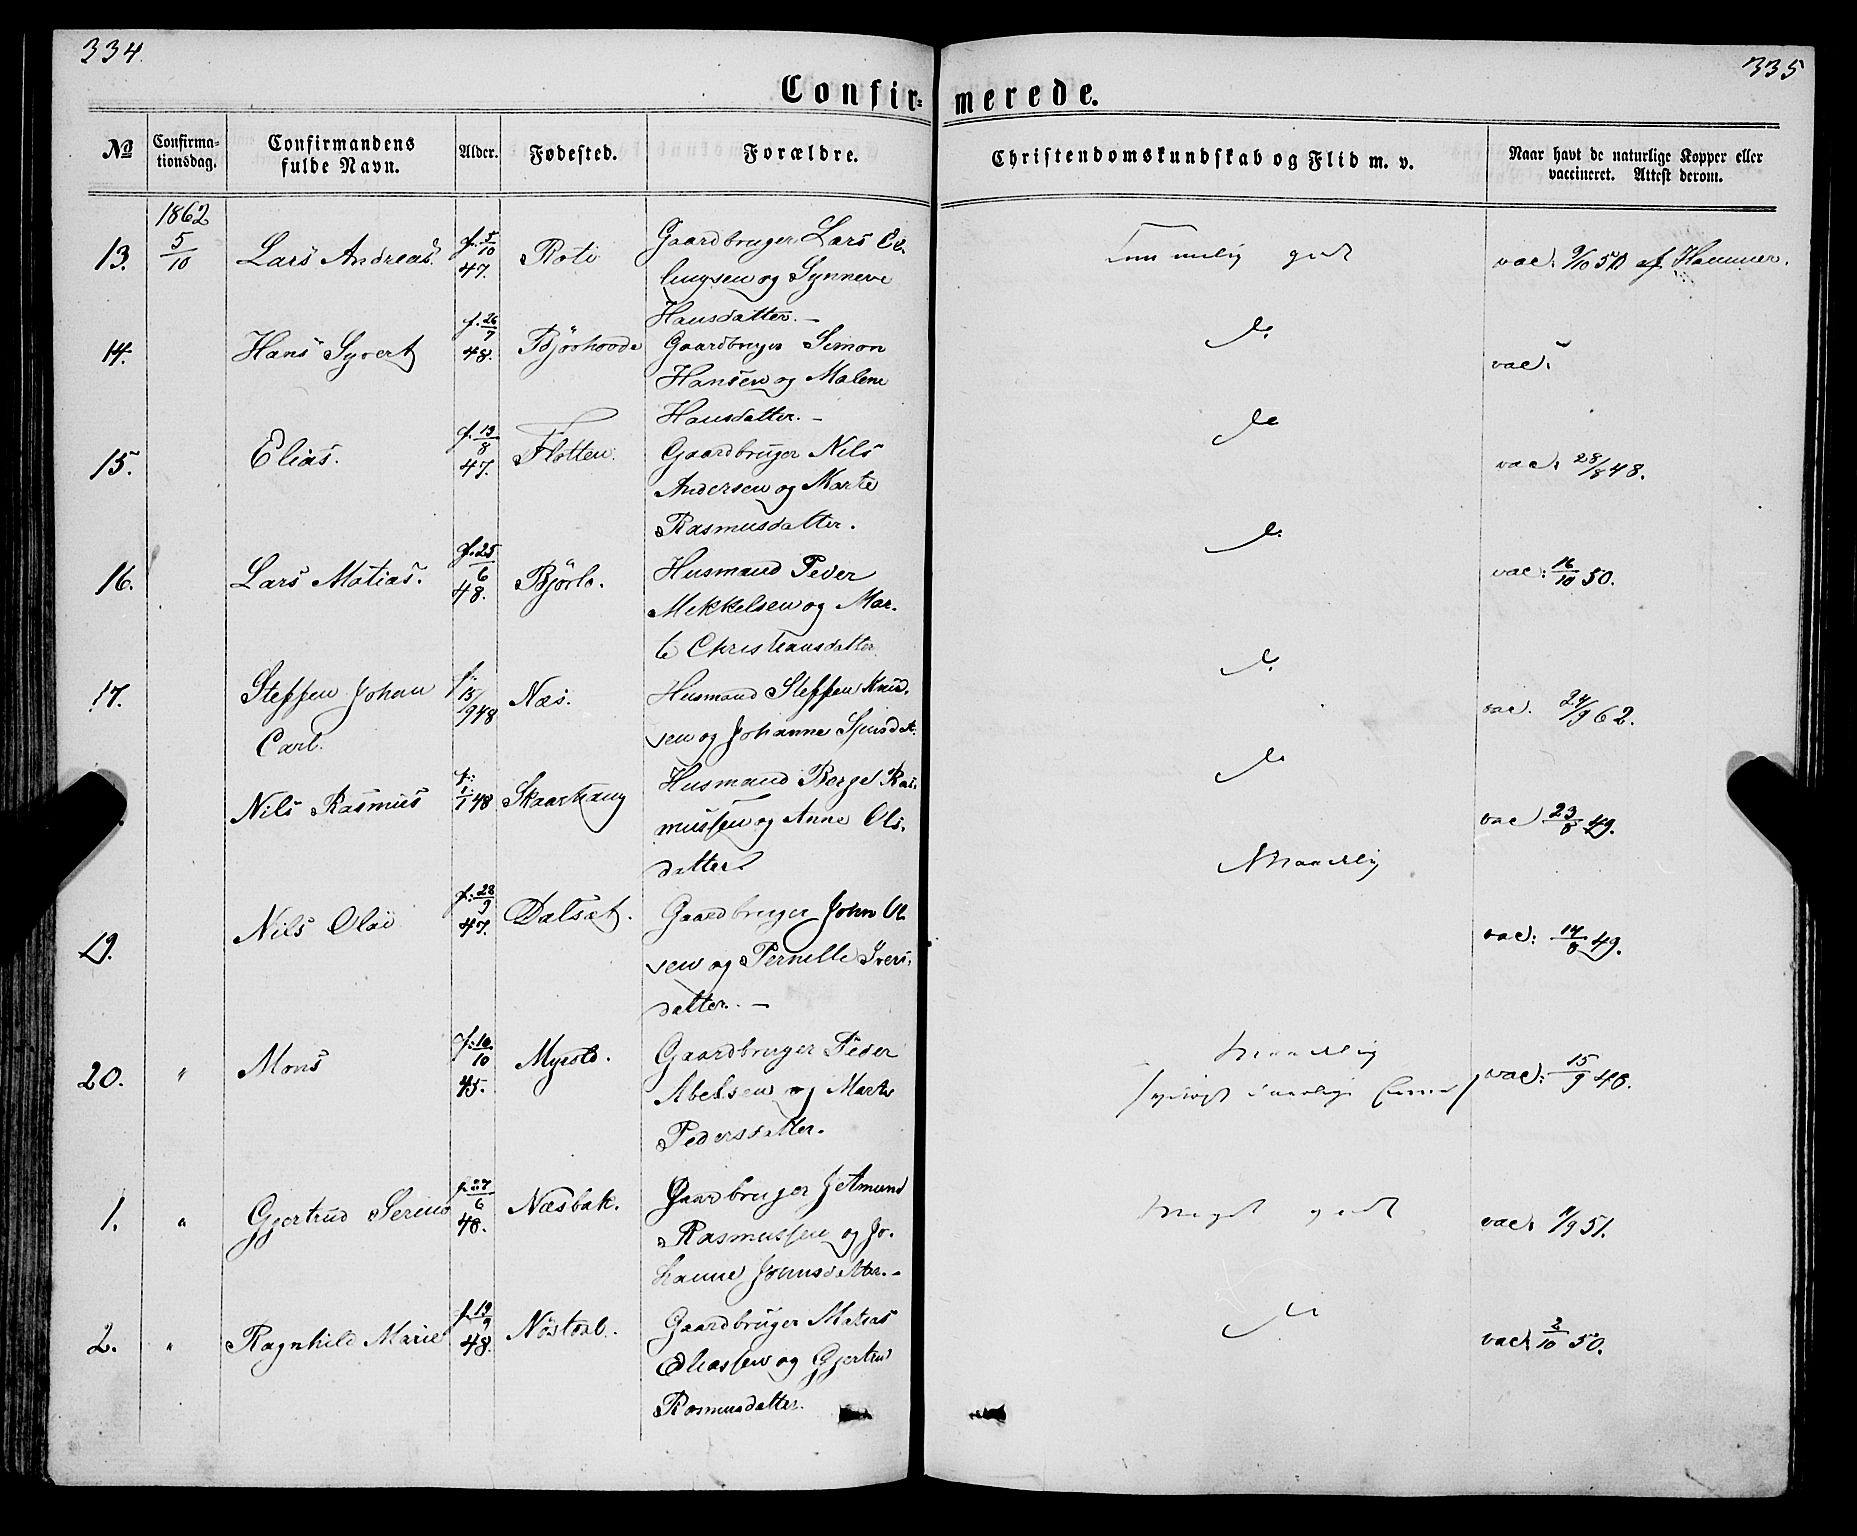 334.
335
Confir= merede.
No
Confirma-
tionsdag.
Confirmandens
fulde Navn.
Alder.
Fødested.
Forældre.
Christendomskundskab og Flid m. v.
Naar havt de naturlige Kopper eller
vaccineret. Attest derom.
1862
13. 5/10 Lars Andreas. f. 5/10 47. Roti Gaardbruger Lars El-
lingsen og Synneve
Hansdatter. —
Temmelig godt
vac. 9/10 50 af Hammer.
14. Hans Syvert f. 26/7 48. Bjørhovde Gaardbruger Simon
Hansen og Malene
Hansdatter. —
do
vac.
15. Elias. f. 19/8 47. Flotten. Gaardbruger Nils
Andersen og Marte
Rasmusdatter.
do
vac. 28/8 48.
16. Lars Matias. f. 25/6 48. Bjørlo. Husmand Peder
Mekkelsen og Mar-
te Christiansdatter
do
vac: 16/10 50.
17. Steffen Johan
Carl.
f. 15/9 48 Næs. Husmand Steffen Knud-
sen og Johanne Sjursdat.
do
vac. 24/9 62.
Nils Rasmus f. 1/1 48 Skaarhaug Husmand Borge Ras-
mussen og Anne Ols-
datter.
do
vac 23/8 49.
19. Nils Olai f. 28/9 47. Dalsæt. Gaardbruger John Ol-
sen og Pernille Ivers-
datter. —
Maadelig
vac: 14/8 49.
20. " Mons f. 16/10 45. Myrold. Gaardbruger Peder
Abelsen og Marte
Pedersdatter.
Maadelig
vac: 15/9 48.
1. " Gjertrud Serine f. 27/6 48. Næsbak. Gaardbruger Jetmund
Rasmussen og Jo-
hanne Johnsdatter. —
Meget godt
vac. 9/9 51.
2. " Ragnhild Marie f. 19/9 48. Nøstdal. Gaardbruger Matias
Eliassen og Gjertru
Rasmusdatter.
do
vac. 2/10 50.